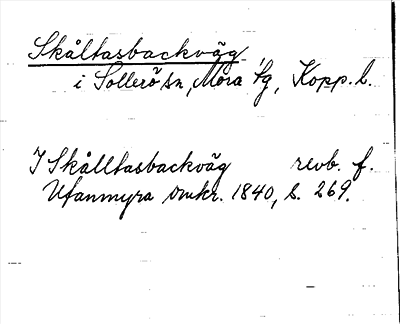 Skåltasbackväg
i Sollerö sn, Mora tg, Kopp. l.
I Skålltasbackväg revb. f.
Utanmyra omkr. 1840, s. 269.